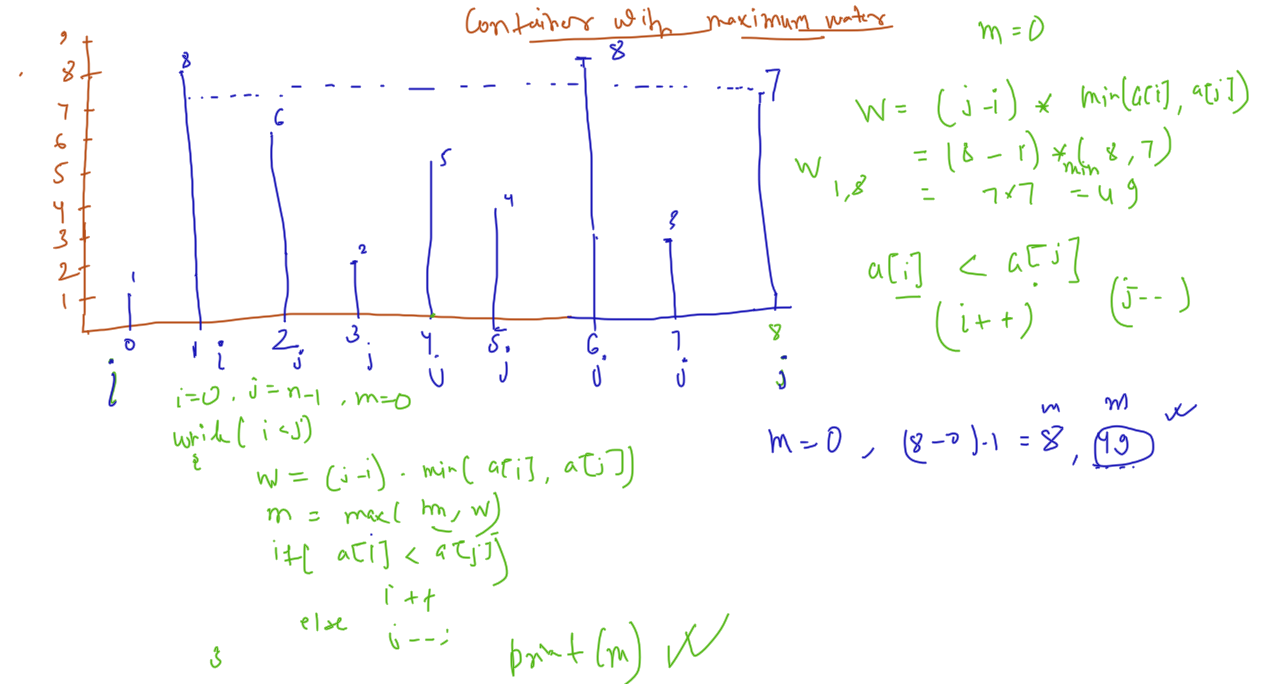 Container with maximum water
m = 0
9
8
7
6
5
4
3
2
1
1 8 6 2 5 4 8 3 7
0 1 2 3 4 5 6 7 8
i i j j j j j j j
W = (j - i) * min(a[i], a[j])
= (8 - 1) * min(8, 7)
W 1,8 = 7*7 = 49
a[i] < a[j]
(i++) (j--)
m m
m = 0, (8-0)·1 = 8, 49
i=0, j=n-1, m=0
while( i<j)
{
W = (j-i) · min( a[i], a[j])
m = max( m, w)
if( a[i] < a[j])
i++
else
j--;
}
print(m)